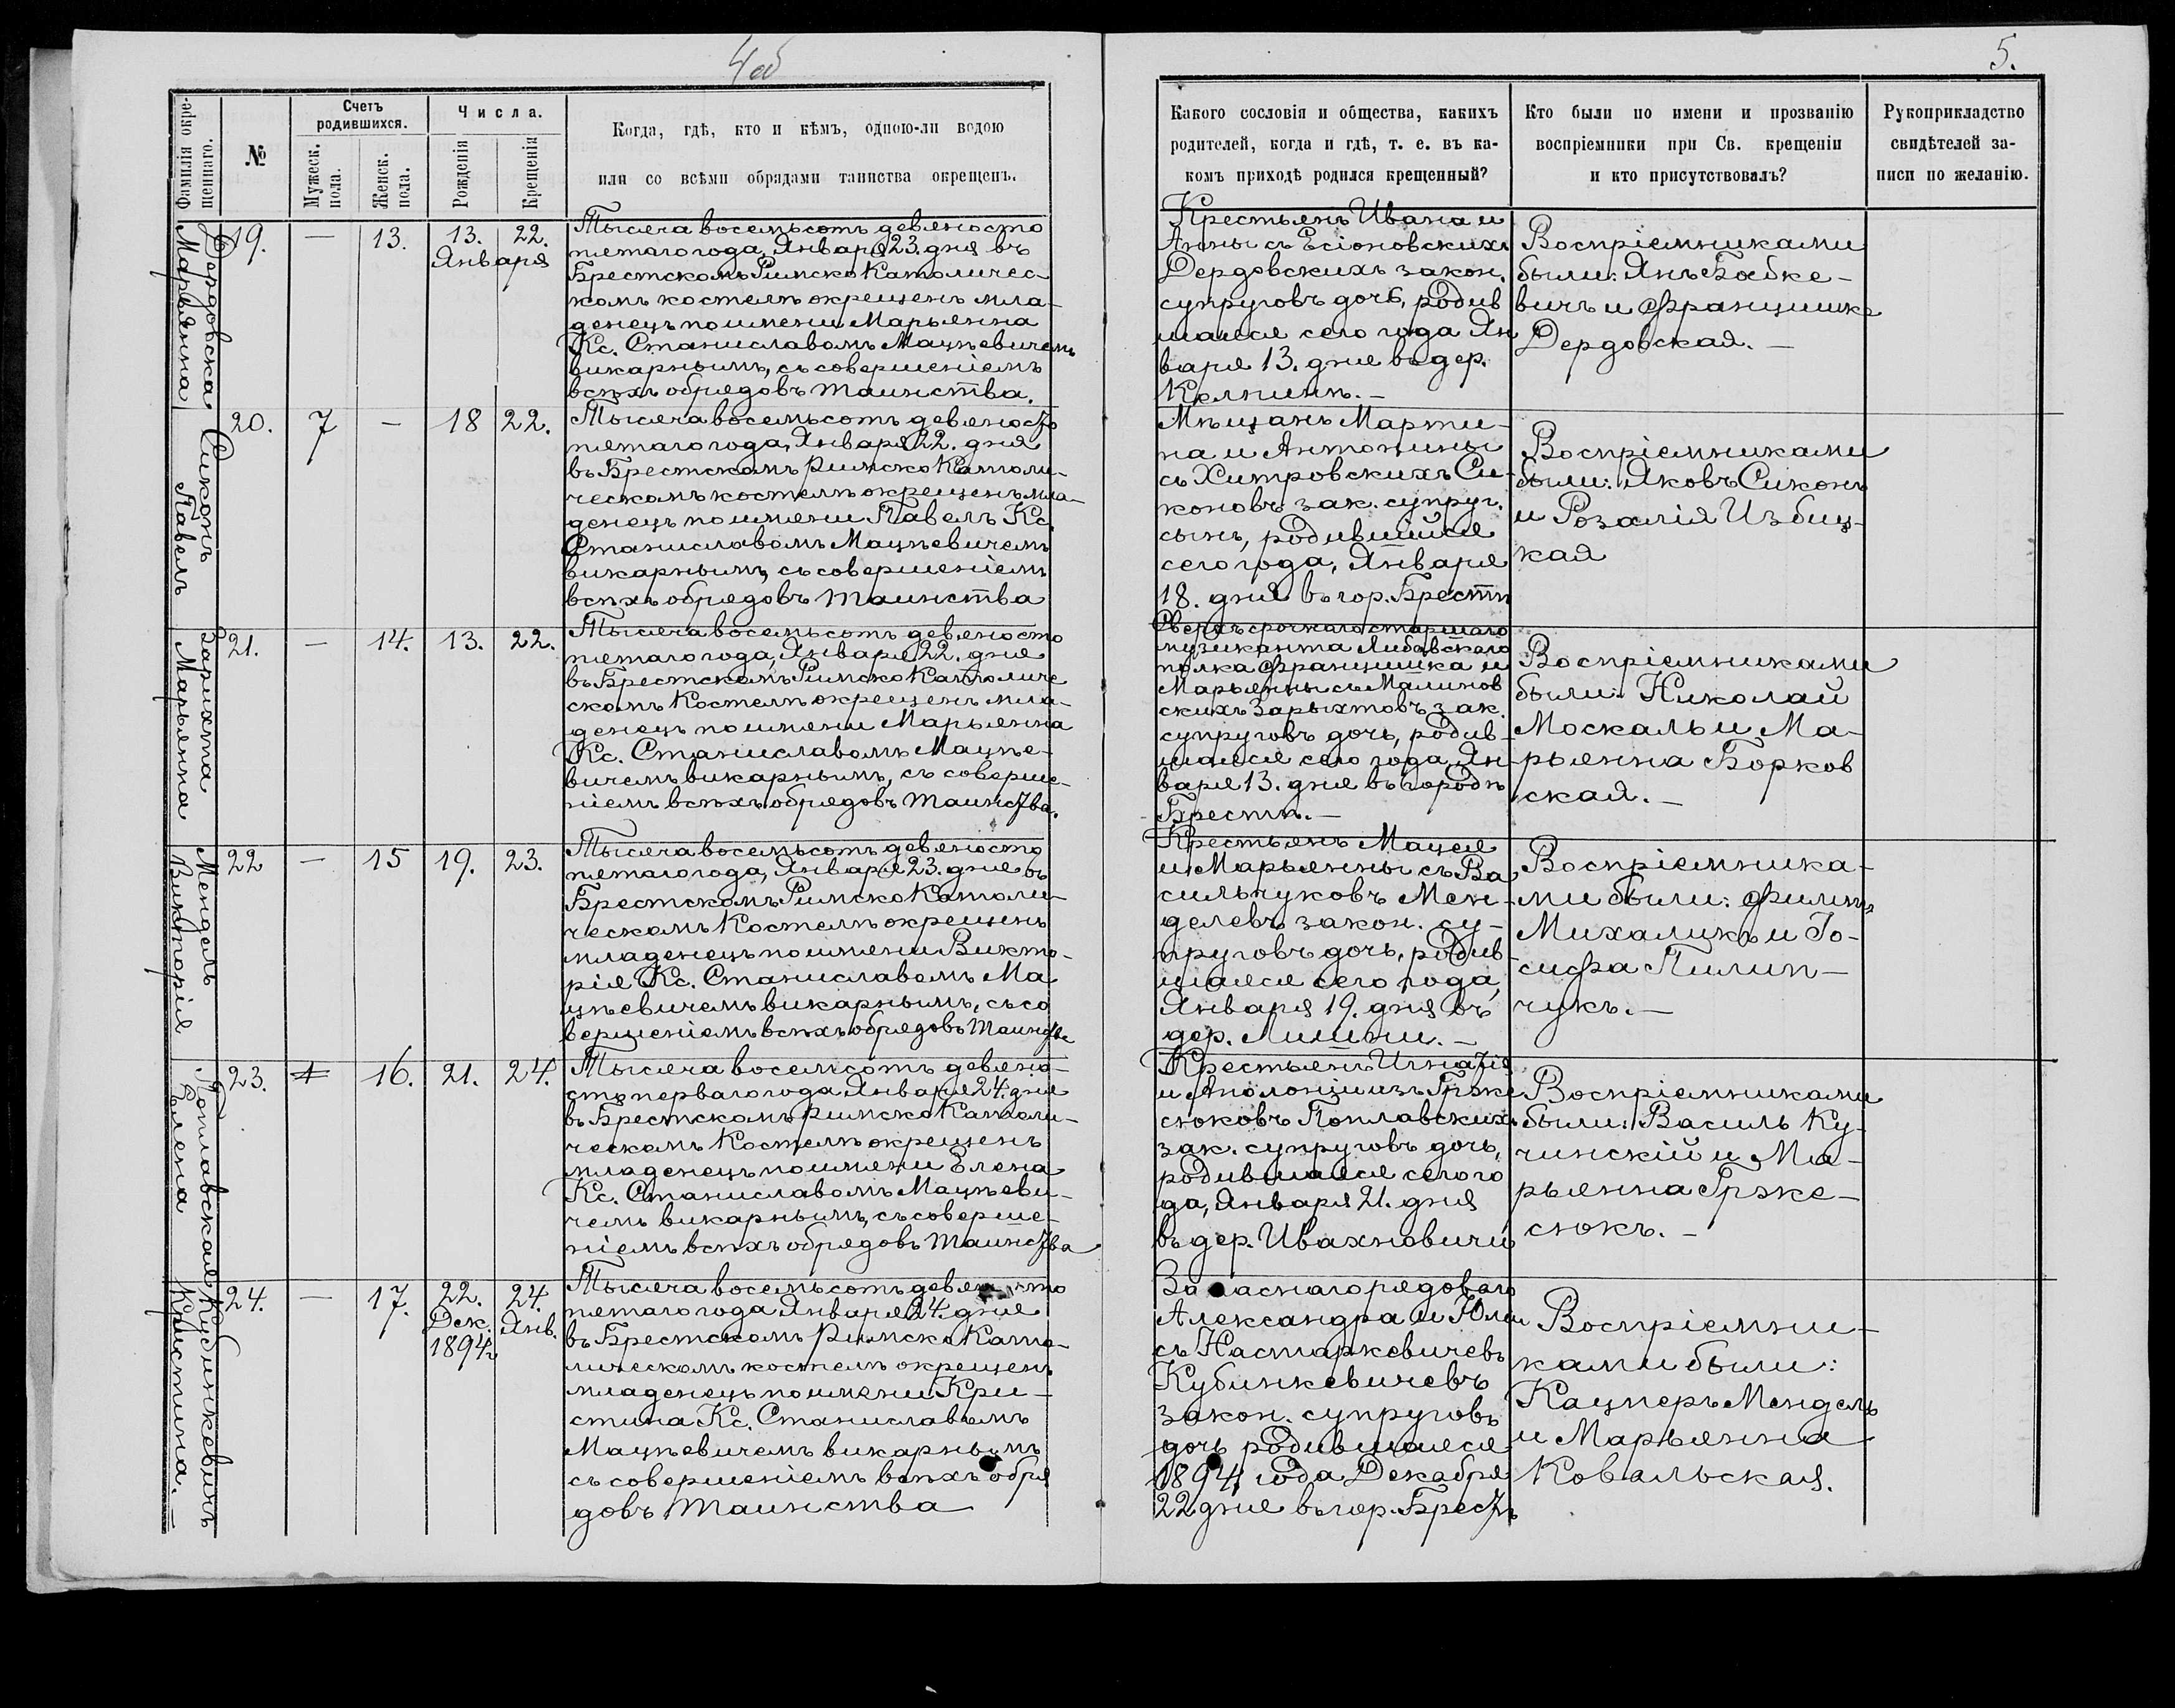 4об
Фамилія окре-
щеннаго.
№
Счетъ
родившихся.
Мужеск.
пола.
Женск.
пола.
Числа.
Рожденія
Крещенія
Когда, гдѣ, кто и кѣмъ, одною-ли водою
или со всѣми обрядами таинства окрещенъ.
Дердовска
Марьянна
19.
—
13.
13.
22.
Января
Тысяча восемьсотъ девяносто
пятаго года, Января 23. дня въ
Брестскомъ Римско Католичес-
комъ костелѣ окрещенъ мла-
денецъ по имени Марьянна
Кс. Станиславомъ Мацѣевичемъ
викарнымъ, съ совершеніемъ
всѣхъ обрядовъ таинства.
Сиконъ
Павелъ
20.
7
—
18
22.
Тысяча восемьсотъ девяносто
пятаго года, Января 22. дня
въ Брестскомъ Римско Католи-
ческомъ костелѣ окрещенъ мла-
денецъ по имени Павелъ Кс.
Станиславомъ Мацѣевичемъ
викарнымъ, съ совершеніемъ
всѣхъ обрядовъ таинства
Зарихта
Марьянна
21.
—
14.
13.
22.
Тысяча восемьсотъ девяносто
пятаго года, Января 22. дня
въ Брестскомъ Римско Католиче
скомъ Костелѣ окрещенъ мла-
денецъ по имени Марьянна
Кс. Станиславомъ Мацѣе-
вичемъ викарнымъ, съ соверше-
ніемъ всѣхъ обрядовъ таинства.
Мендель
Викторія
22
—
15
19.
23.
Тысяча восемьсотъ девяносто
пятаго года, Января 23. дня въ
Брестскомъ Римско Католи-
ческомъ Костелѣ окрещенъ
младенецъ по имени Викто-
рія Кс. Станиславомъ Ма
цѣевичемъ викарнымъ, съ со
вершеніемъ всѣхъ обрядовъ таинства
Поплавская
Елена
23.
16.
21.
24.
Тысяча восемсотъ девяно-
сто перваго года Января 24. дня
въ Брестскомъ Римско Католи-
ческомъ Костелѣ окрещенъ
младенецъ по имени Елена
Кс. Станиславомъ Мацѣеви-
чемъ викарнымъ, съ соверше-
ніемъ всѣхъ обрядовъ таинства
Кубинкевичъ
Кристина. —
24.
—
17.
22.
Дек.
1894г
24.
Янв.
Тысяча восемьсотъ девяносто
пятаго года Января 24. дня
въ Брестскомъ Римско Като-
лическомъ костелѣ окрещенъ
младенецъ по имени Кри-
стина Кс. Станиславомъ
Мацѣевичемъ викарнымъ
съ совершеніемъ всѣхъ обря
довъ таинства
5.
Какого сословія и общества, какихъ
родителей, когда и гдѣ, т. е. въ ка-
комъ приходѣ родился крещенный?
Кто были по имени и прозванію
воспріемники при Св. крещеніи
и кто присутствовалъ?
Рукоприкладство
свидѣтелей за-
писи по желанію.
Крестьянъ Ивана и
Анны съ Есіоновскихъ
Дердовскихъ закон.
супруговъ дочь, родив
шаяся сего года Ян
варя 13. дня въ дер.
Колпинѣ. —
Воспріемниками
были: Янъ Бобке-
вичъ и Францишка
Дердовская. —
Мѣщанъ Марти-
на и Антонины
съ Хитровскихъ Си-
коновъ зак. супруг.
сынъ, родившійся
сего года, Января
18. дня въ гор. Брестѣ
Воспріемниками
были: Яковъ Сиконъ
и Розалія Избиц-
кая
Сверхъ срочнаго старшаго
музиканта Либавскаго
полка Францишка и
Марьянны съ Малинов
скихъ Зарыхтовъ зак.
супруговъ дочь, родив-
шаяся сего года, Ян-
варя 13. дня въ городѣ
Брестѣ. —
Воспріемниками
были: Николай
Москаль и Ма-
рьянна Борков
ская. —
Крестьянъ Мацея
и Марьянны съ Ва
сильчуковъ Мен-
делевъ закон. су-
пруговъ дочь, родив-
шаяся сего года,
Января 19. дня въ
дер. Лищи. —
Воспріемника-
ми были: Филипъ
Михалукъ и Іо-
сифа Пилип-
чукъ. —
Крестьянъ Игнатія
и Аполоніи изъ Грже
сюковъ Поплавскихъ
зак. супруговъ дочь,
родившаяся сего го
да, Января 21. дня
въ дер. Ивахновичи
Воспріемниками
были: Василь Ку-
чинскій и Ма-
рьянна Грже-
сюкъ. —
Запаснаго рядоваго
Александра и Юліи
съ Настаркевичевъ
Кубинкевичевъ
закон. супруговъ
дочь родившаяся
1894 года Декабря
22 дня въ гор. Брестѣ
Воспріемни-
ками были:
Кацперъ Мендель
и Марьянна
Ковальская.